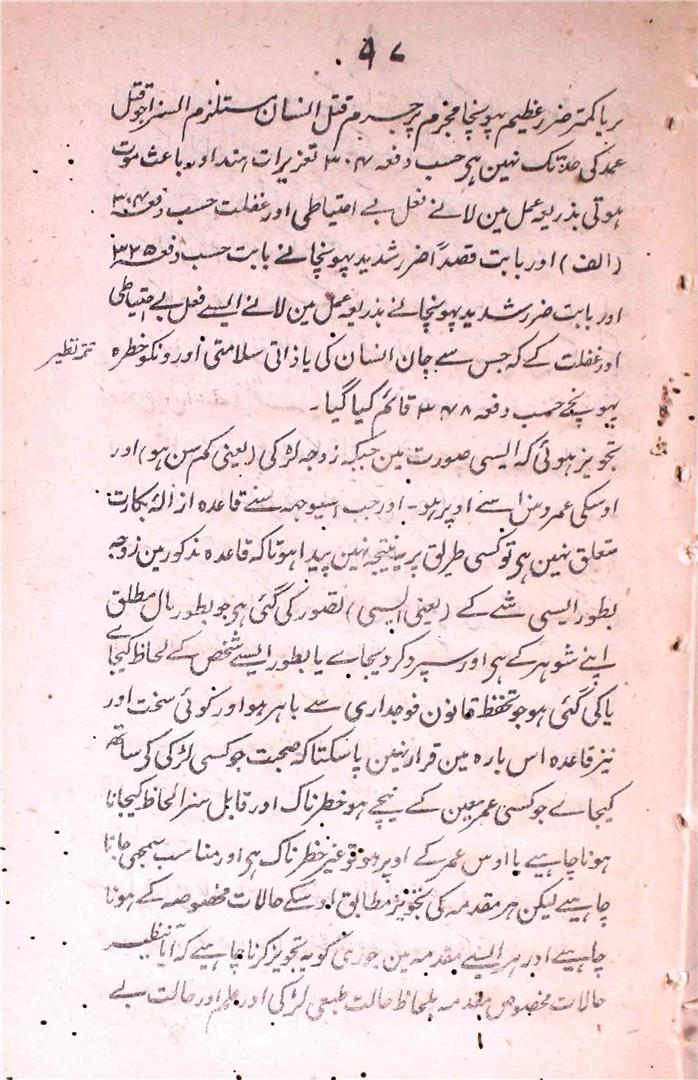 ۹۷
بر یا کمتر ضرر عظیم پہونچا مجرم پر جرم قتل انسان مستلزم السزا جو قتل
عمد کی حد تک نہین ہی حسب دفعہ ۳۰۴ تعزیرات ہند اور باعث موت
ہوتی بذریعہ عمل مین لانے فعل بے احتیاطی اور غفلت حسب دفعہ ۳۰۴
(الف) اور بابت قصداً ضرر شدید پہونچانے بابت حسب دفعہ ۳۲۵
اور بابت ضرر شدید پہونچانے بذریعہ عمل مین لانے ایسے فعل بے احتیاطی
اور غفلت کے کہ جس سے جان انسان کی یا ذاتی سلامتی اورونکو خطرہ
تتمہ نظیر
پہونچے حسب دفعہ ۳۳۸ قائم کیا گیا۔
تجویز ہوئی کہ ایسی صورت مین جبکہ زوجہ لڑکی (یعنی کم سن ہو) اور
اوسکی عمر دس ۱۰ سے اوپر ہو۔ اور جب اسیوجہہ سے قاعدہ ازالۂ بکارت
متعلق نہین ہی تو کسی طریق پر یہ نتیجہ نہین پیدا ہوتا کہ قاعدہ مذکور مین زوجہ
بطور ایسی شے کے (یعنی ایسی) تصور کی گئی ہی جو بطور مال مطلق
اپنے شوہر کے ہی اور سپرد کر دیجاے یا بطور ایسے شخص کے لحاظ کیجاے
یا کی گئی ہو جو تحفظ قانون فوجداری سے باہر ہو اور کوئی سخت اور
نیز قاعدہ اس بارہ مین قرار نہین پا سکتا کہ صحبت جو کسی لڑکی کے ساتھ
کیجاے جو کسی عمر معین کے نیچے ہو خطرناک اور قابل سزا لحاظ کیجانا
ہونا چاہیے یا اوس عمر کے اوپر ہو تو غیر خطرناک ہی اور مناسب سمجھی جانا
چاہیے لیکن ہر مقدمہ کی تجویز مطابق اوسکے حالات مخصوصہ کے ہونا
چاہیے اور ہر ایسے مقدمہ مین جوری کو یہ تجویز کرنا چاہیے کہ آیا بنظر
حالات مخصوص مقدمہ بلحاظ حالت طبعی لڑکی اور علم اور حالت بے